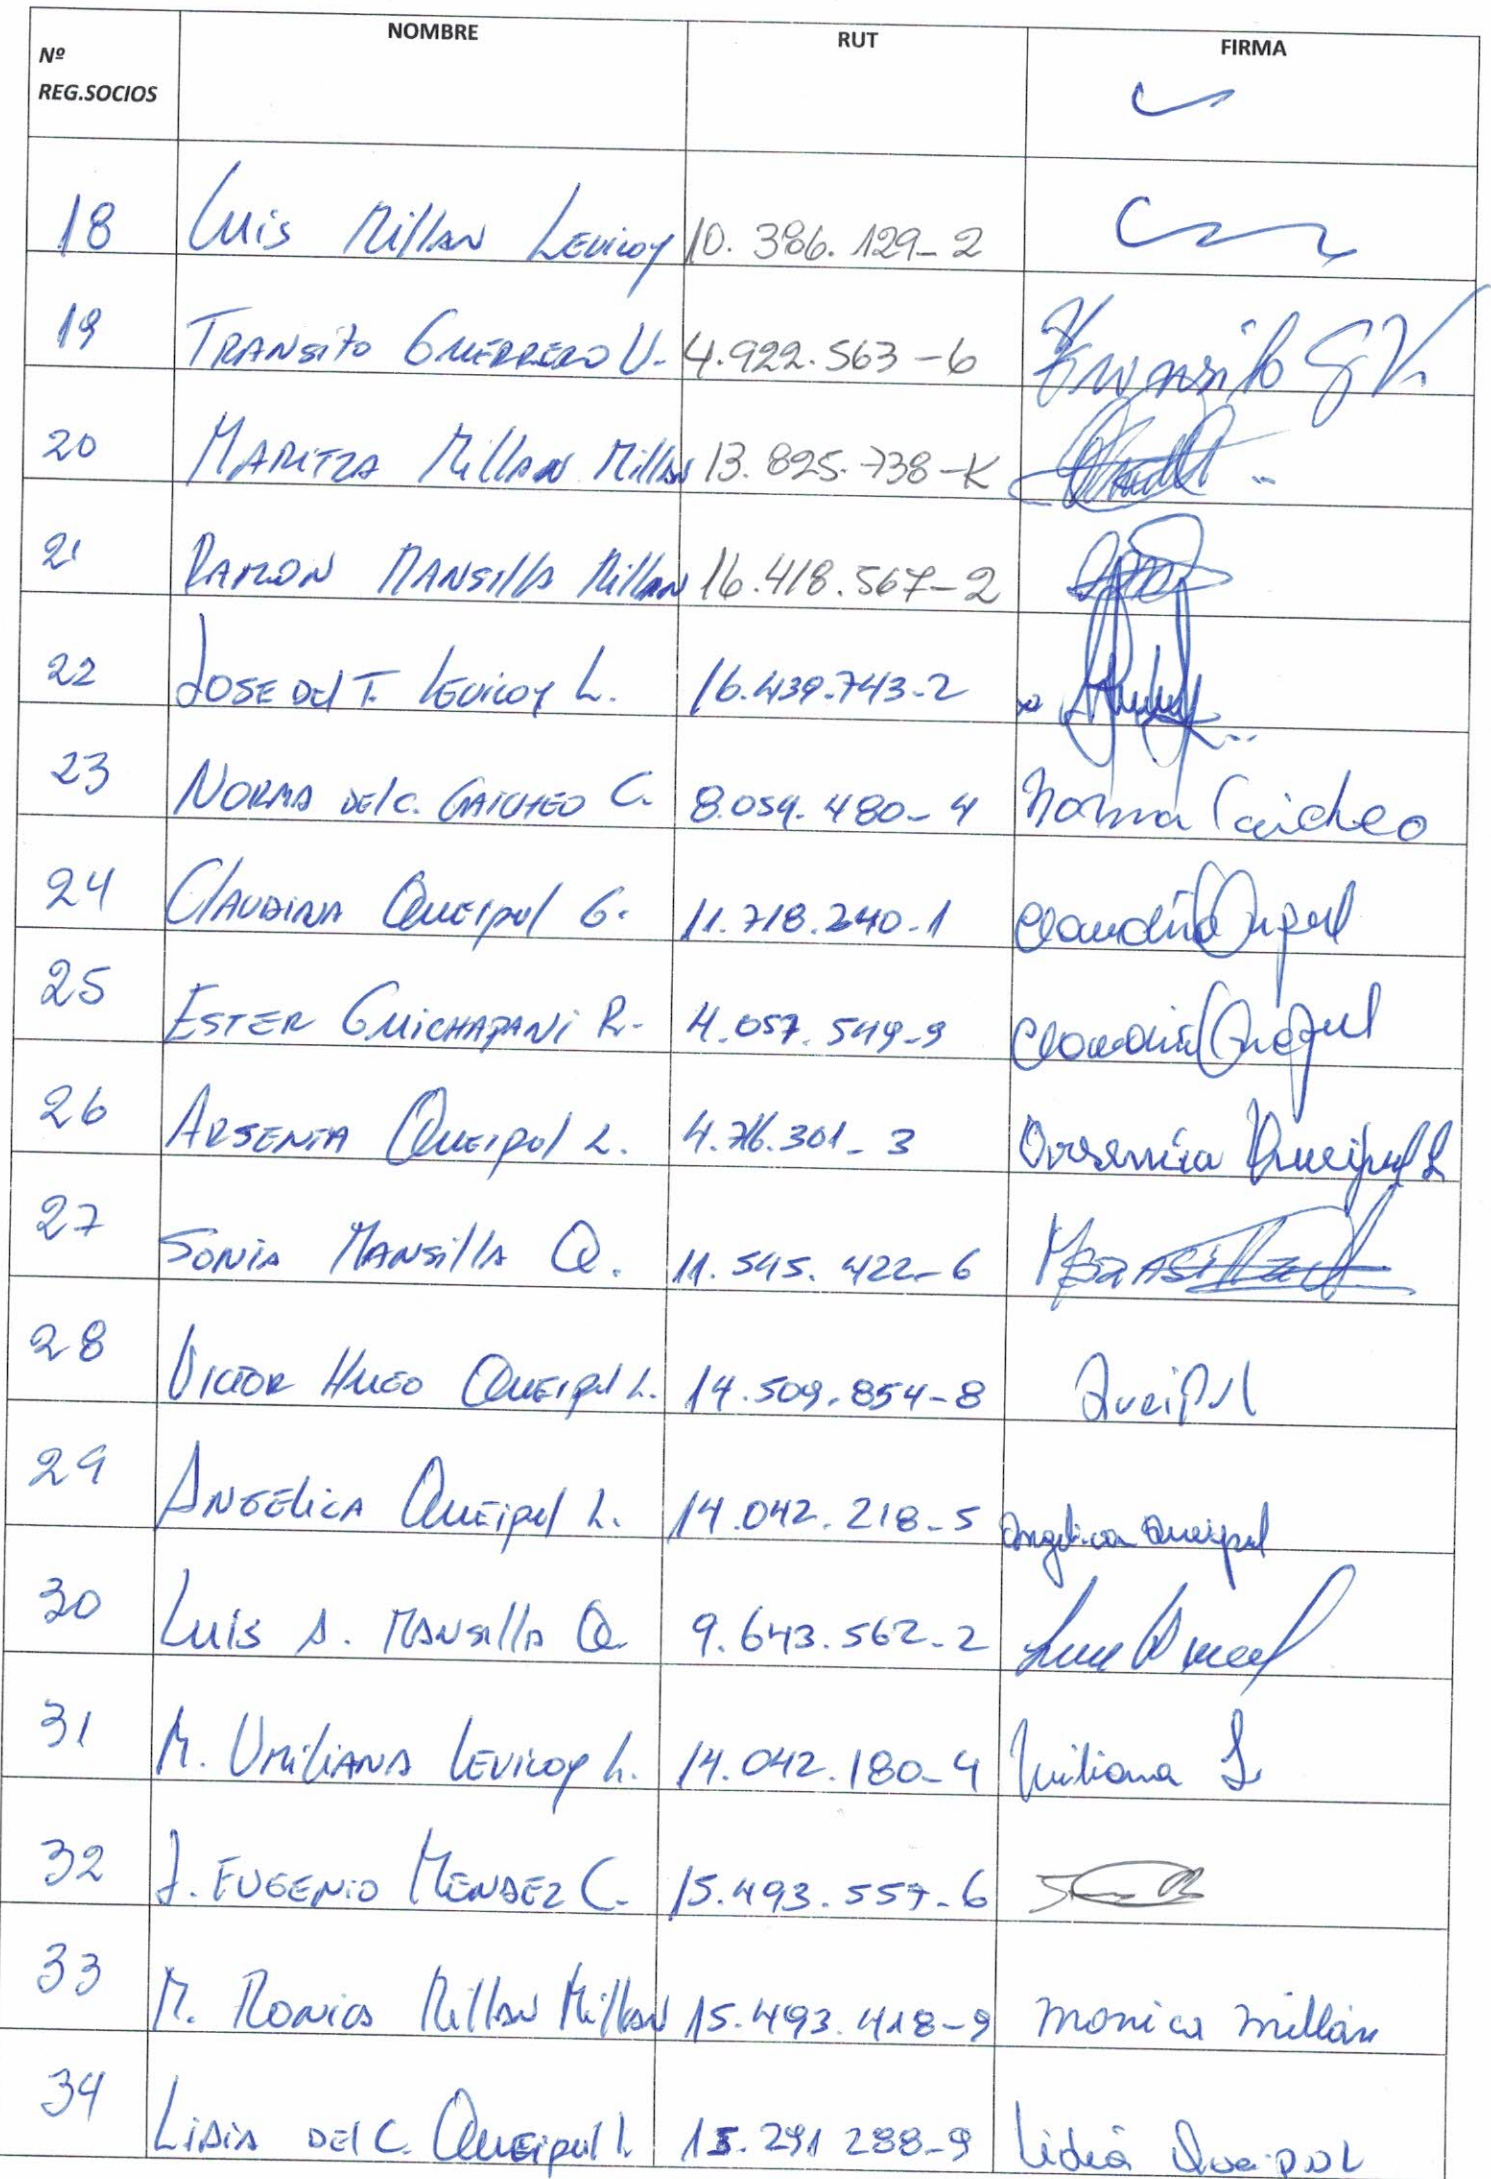 Nº REG.SOCIOS NOMBRE RUT FIRMA
18 Luis Millan Levicoy 10.386.129-2
19 TRANSITO GUERRERO V. 4.922.563-6 Transito G V
20 MARITZA Millan Millan 13.825.738-K
21 RAMON MANSILLA Millan 16.418.567-2
22 JOSE Del T. Levicoy L. 16.439.743-2
23 NORMA DEL C. CAICHEO C. 8.054.480-4 Norma Caicheo
24 CLAUDINA QUEIPUL G. 11.718.240-1 Claudina Queipul
25 ESTER GUICHAPANI R. 4.057.549-9 Claudina Queipul
26 ARSENIA QUEIPUL L. 4.716.301-3 Arsenia Queipul L
27 SONIA MANSILLA Q. 11.545.422-6
28 VICTOR HUGO QUEIPUL L. 14.509.854-8 QueiPul
29 ANGELICA QUEIPUL L. 14.042.218-5 Angelica Queipul
30 Luis A. MANSILLA Q. 9.643.562-2
31 M. UMILIANA LEVICOY L. 14.042.180-4 Umiliana L
32 J. EUGENIO MENDEZ C. 15.493.557-6
33 M. MONICA Millan Millan 15.493.418-9 Monica Millán
34 LIDIA DEL C. QUEIPUL L. 15.291 288-9 Lidia QueipuL